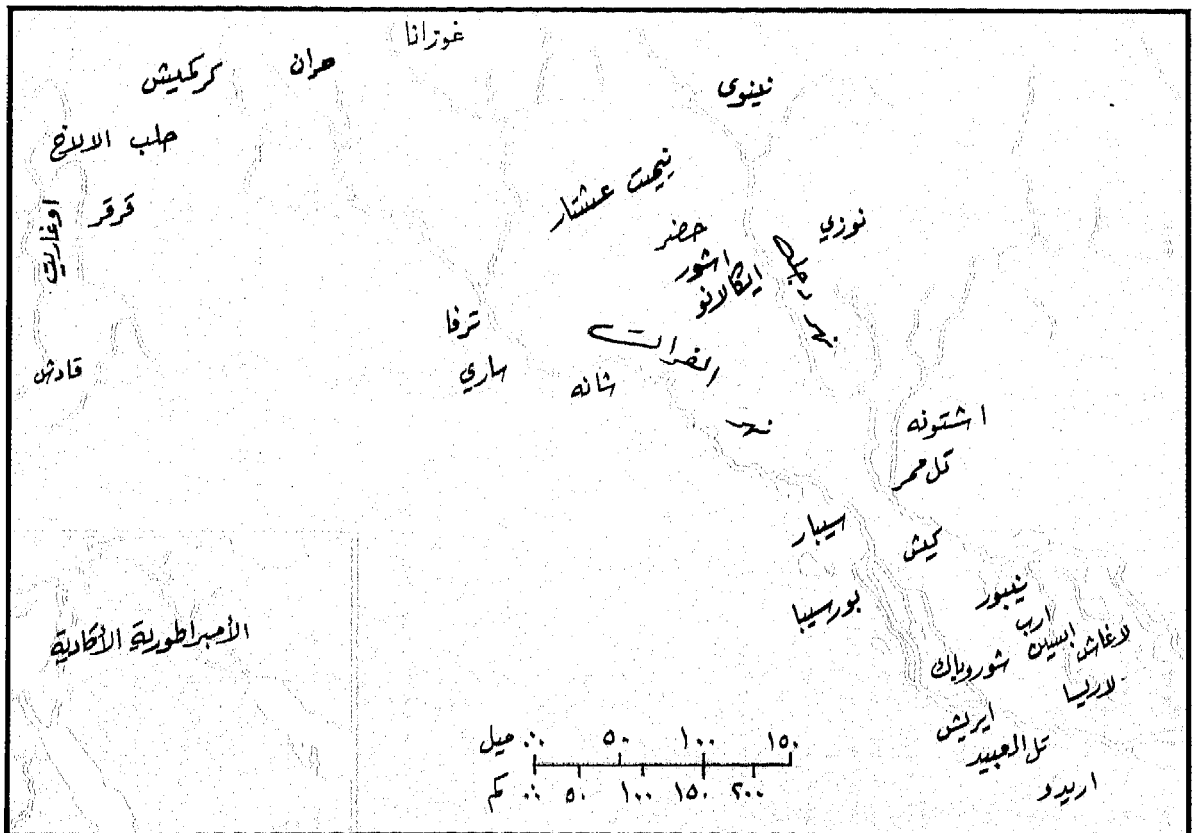 غوزانا
كركميش حران
نينوى
حلب الالاخ
قرقر
اوغاريت
نيمت عشتار
حضر
اشور
ايكالانو
نوزي
نهر دجلة
ترفا
ماري
شانه
نهر الفرات
قادش
اشتونه
تل محر
سيبار
كيش
بورسيبا
نيبور
ارب
ايسين
لاغاش
شوروباك
لارسا
ايريش
تل العبيد
اريدو
الأمبراطورية الأكادية
ميل ٠ ٥٠ ١٠٠ ١٥٠
كم ٠ ٥٠ ١٠٠ ١٥٠ ٢٠٠